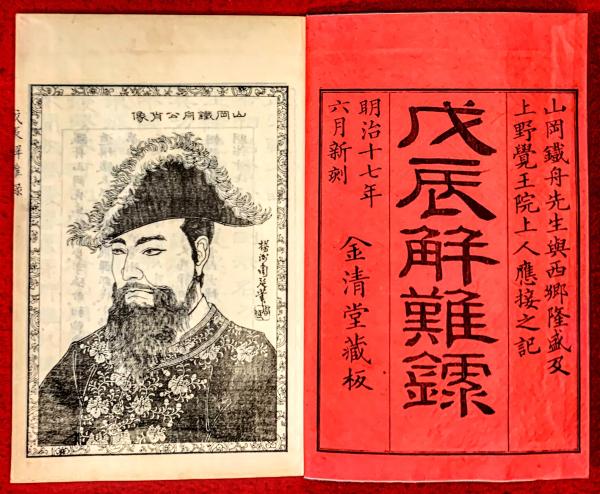 山岡鐵舟先生與西郷隆盛及
上野覺王院上人應接之記
戊辰解難錄
明治十七年
六月新刻
金清堂藏板
山岡鐵舟公肖像
楊洲周延筆
戊辰解難錄